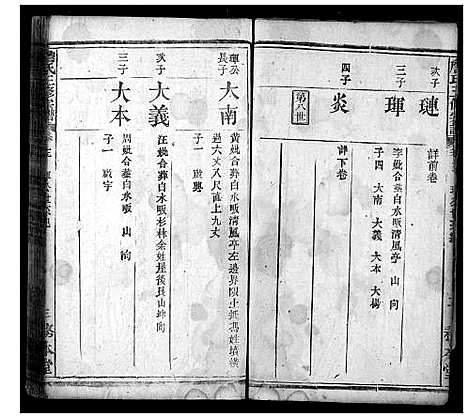 次子
璉
詳前卷
三子
琿
李妣合葬白水畈清風亭 山 向
子四 大南 大義 大本 大楊
四子
炎
詳下卷
第八世
琿公長子
大南
黃妣合葬白水畈清風亭左邊界限上抵馮姓墳橫
過六丈八尺直上九丈
子一
次子
大義
汪妣合葬白水畈杉林余姓屋後艮山坤向
三子
大本
周妣合葬白水畈 山 向
子一 啟宇